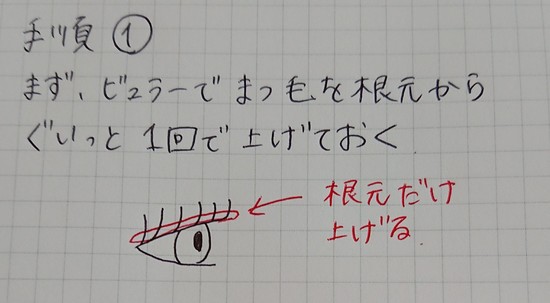 手順①
まず、ビューラーでまつ毛を根元から
ぐいっと1回で上げておく
根元だけ
上げる